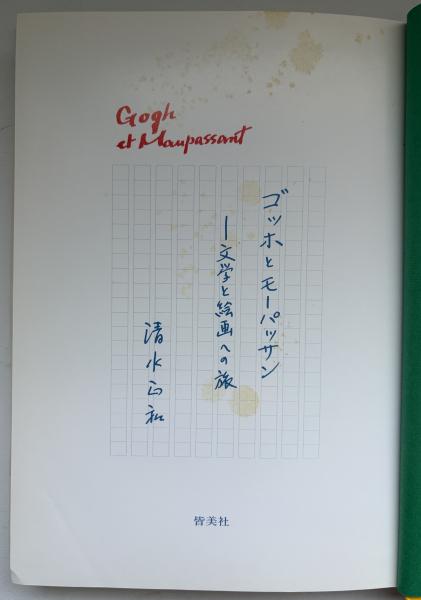 Gogh
et Maupassant
ゴッホとモーパッサン
―文学と絵画への旅
清水正和
皆美社